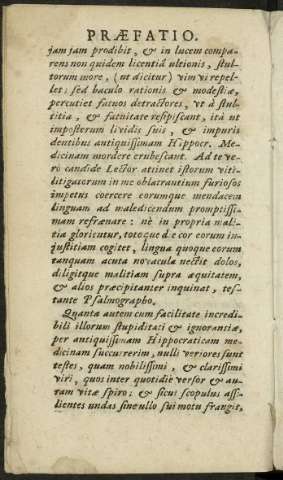 PRÆFATIO.
jam jam prodibit, & in lucem compa-
rens non quidem licentiâ ultionis, stul-
torum more, (ut dicitur) vim vi repel-
let: sed baculo rationis & modestiæ,
percutiet fatuos detractores, ut à stul-
titia, & fatuitate resipiscant, ità ut
imposterum lividis suis, & impuris
dentibus antiquissimam Hippocr. Me-
dicinam mordere erubescant. Ad te ve-
ro candide Lector attinet istorum viti-
litigatorum in me oblatrantium furiosos
impetus coercere eorumque mendacem
linguam ad maledicendum promptissi-
mam refrænare: nè in propria mali-
tia glorientur, totoque die cor eorum in-
justitiam cogitet, lingua quoque eorum
tanquam acuta novacula nectit dolos,
diligitque malitiam supra æquitatem,
& alios præcipitanter inquinat, tes-
tante Psalmographo.
Quanta autem cum facilitate incredi-
bili illorum stupiditati & ignorantiæ,
per antiquissimam Hippocraticam me-
dicinam succurrerim, nulli veriores sunt
testes, quam nobilissimi, & clarissimi
viri, quos inter quotidie versor & au-
ram vitæ spiro; & sicut scopulus assi-
lientes undas sine ullo sui motu frangit,